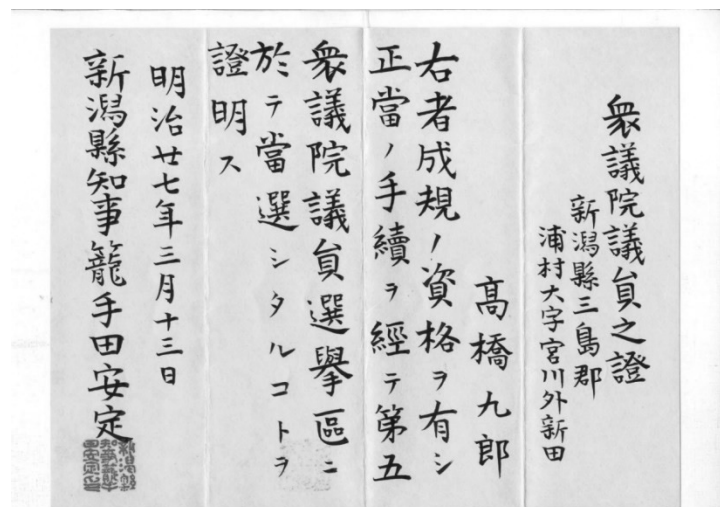 衆議院議員之證
新潟縣三島郡
浦村大字宮川外新田
髙橋九郎
右者成規ノ資格ヲ有シ
正當ノ手續ヲ經テ第五
衆議院議員選擧區ニ
於テ當選シタルコトヲ
證明ス
明治廿七年三月十三日
新潟縣知事籠手田安定